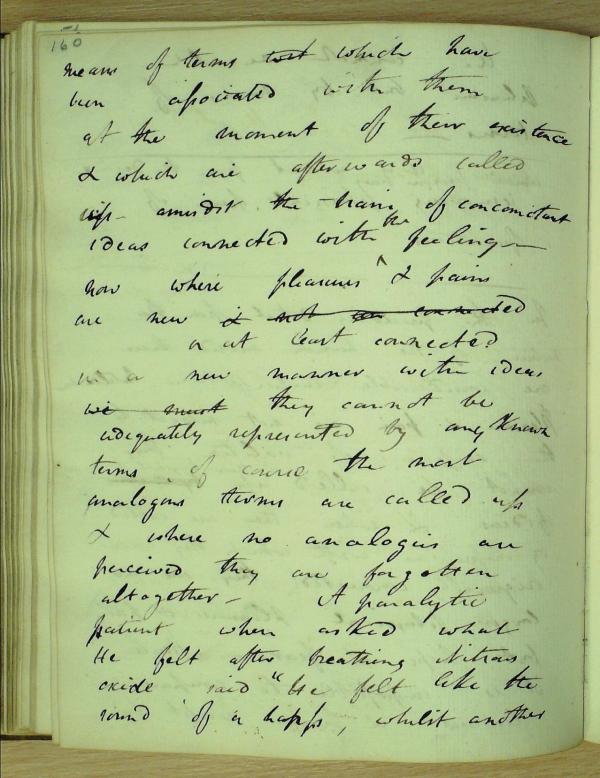 160
means of terms which have
been associated with them
at the moment of their existence
& which are afterwards called
up amidst the train of concomitant
ideas connected with the feeling—
now where pleasures & pains
are new & not connected
or at least connected
in a new manner with ideas
we must they cannot be
adequately represented by any known
terms of course the most
analogous terms are called up
& where no analogies are
perceived they are forgotten
altogether— A paralytic
patient when asked what
He felt after breathing Nitrous
oxide said "He felt like the
sound of a harp, whilst another